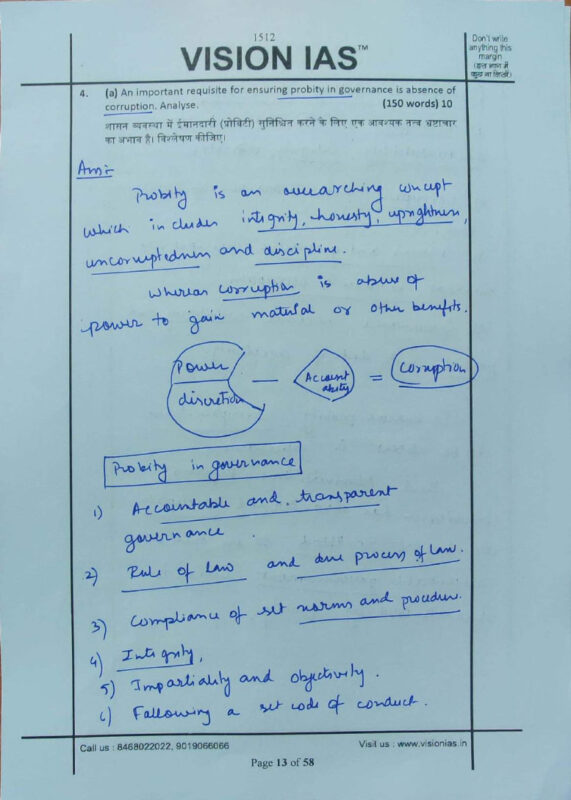 1512
VISION IAS™
Don't write
anything this
margin
(इस भाग में
कुछ ना लिखें)
4. (a) An important requisite for ensuring probity in governance is absence of
corruption. Analyse. (150 words) 10
शासन व्यवस्था में ईमानदारी (प्रोबिटी) सुनिश्चित करने के लिए एक आवश्यक तत्व भ्रष्टाचार
का अभाव है। विश्लेषण कीजिए।
Ans:-
Probity is an overarching concept
which includes integrity, honesty, uprightness,
uncorruptedness and discipline.
Whereas corruption is abuse of
power to gain material or other benefits.
Power
discretion
—
Account
ability
=
Corruption
Probity in governance
1) Accountable and transparent
governance
2) Rule of law and due process of law.
3) Compliance of set norms and procedures.
4) Integrity,
5) Impartiality and objectivity.
6) Following a set code of conduct.
Call us : 8468022022, 9019066066
Visit us : www.visionias.in
Page 13 of 58